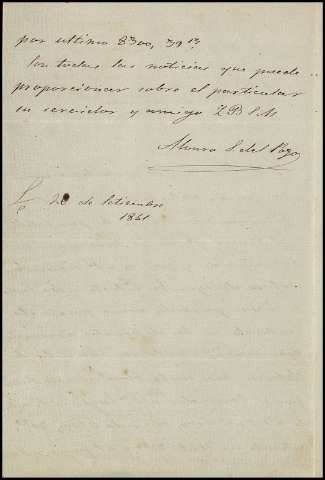 por ultimo 8300, 39
son todas las noticias que puede
proporcionar sobre el particular
su servidor y amigo
Alvaro del Pozo
20 de Setiembre
1861